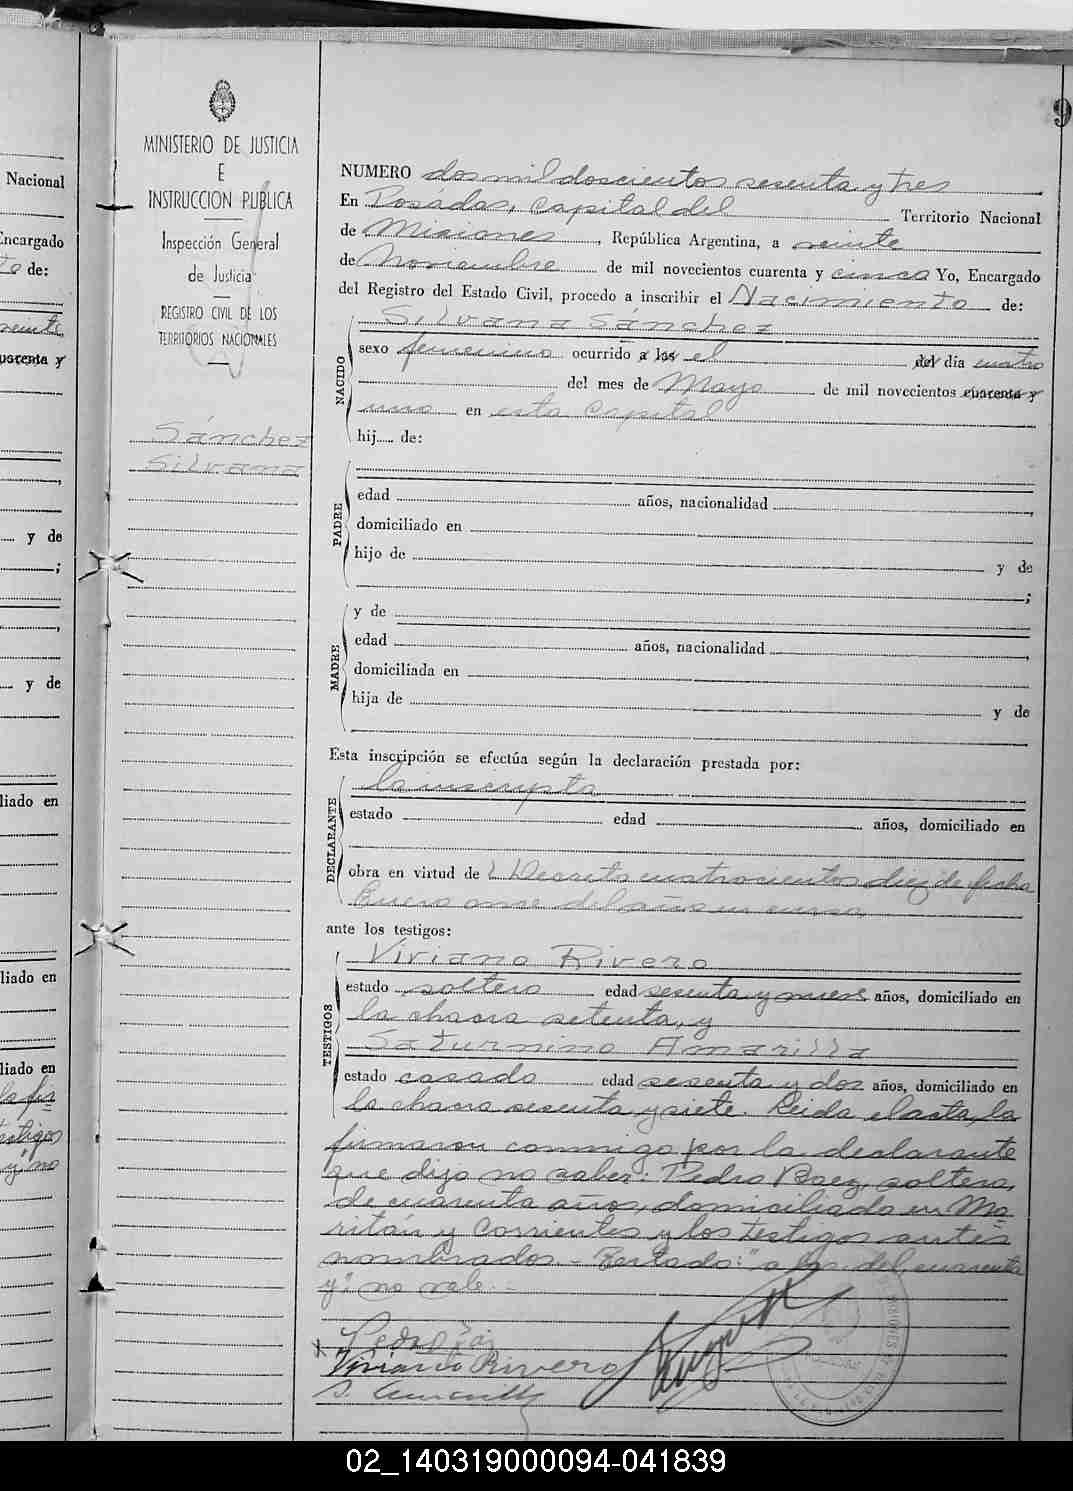 9
Nacional
Encargado
to de:
veinte
cuarenta y
y de
;
,
y de
liado en
liado en
liado en
la fir
testigos
y" no
MINISTERIO DE JUSTICIA
E
INSTRUCCION PUBLICA
Inspección General
de Justicia
REGISTRO CIVIL DE LOS
TERRITORIOS NACIONALES
Sánchez
Silvana
NUMERO dos mil doscientos sesenta y tres
En Posadas, Capital del Territorio Nacional
de Misiones, República Argentina, a veinte
de Noviembre de mil novecientos cuarenta y cinco Yo, Encargado
del Registro del Estado Civil, procedo a inscribir el Nacimiento de:
NACIDO
Silvana Sánchez
sexo femenino ocurrido a las el del día cuatro
del mes de Mayo de mil novecientos cuarenta y
uno en esta Capital
hij de:
PADRE
edad años, nacionalidad ,
domiciliado en
hijo de y de
;
MADRE
y de
edad años, nacionalidad ,
domiciliada en
hija de y de
Esta inscripción se efectúa según la declaración prestada por:
DECLARANTE
la inscripta
estado edad años, domiciliado en
obra en virtud de l Decreto cuatrocientos diez de fecha
Enero once del año en curso
ante los testigos:
TESTIGOS
Viviano Rivero
estado soltero edad sesenta y nueve años, domiciliado en
la chacra setenta, y
Saturnino Amarilla
estado casado edad sesenta y dos años, domiciliado en
la chacra sesenta y siete. Leida el acta, la
firmaron conmigo por la declarante
que dijo no saber: Pedro Baez, soltero,
de cuarenta años, domiciliado en Ma=
ritán y Corrientes y los testigos antes
nombrados.- Testado: "a las. del. cuarenta
y": no vale.
Pedro
Viviano Rivero
02_140319000094-041839